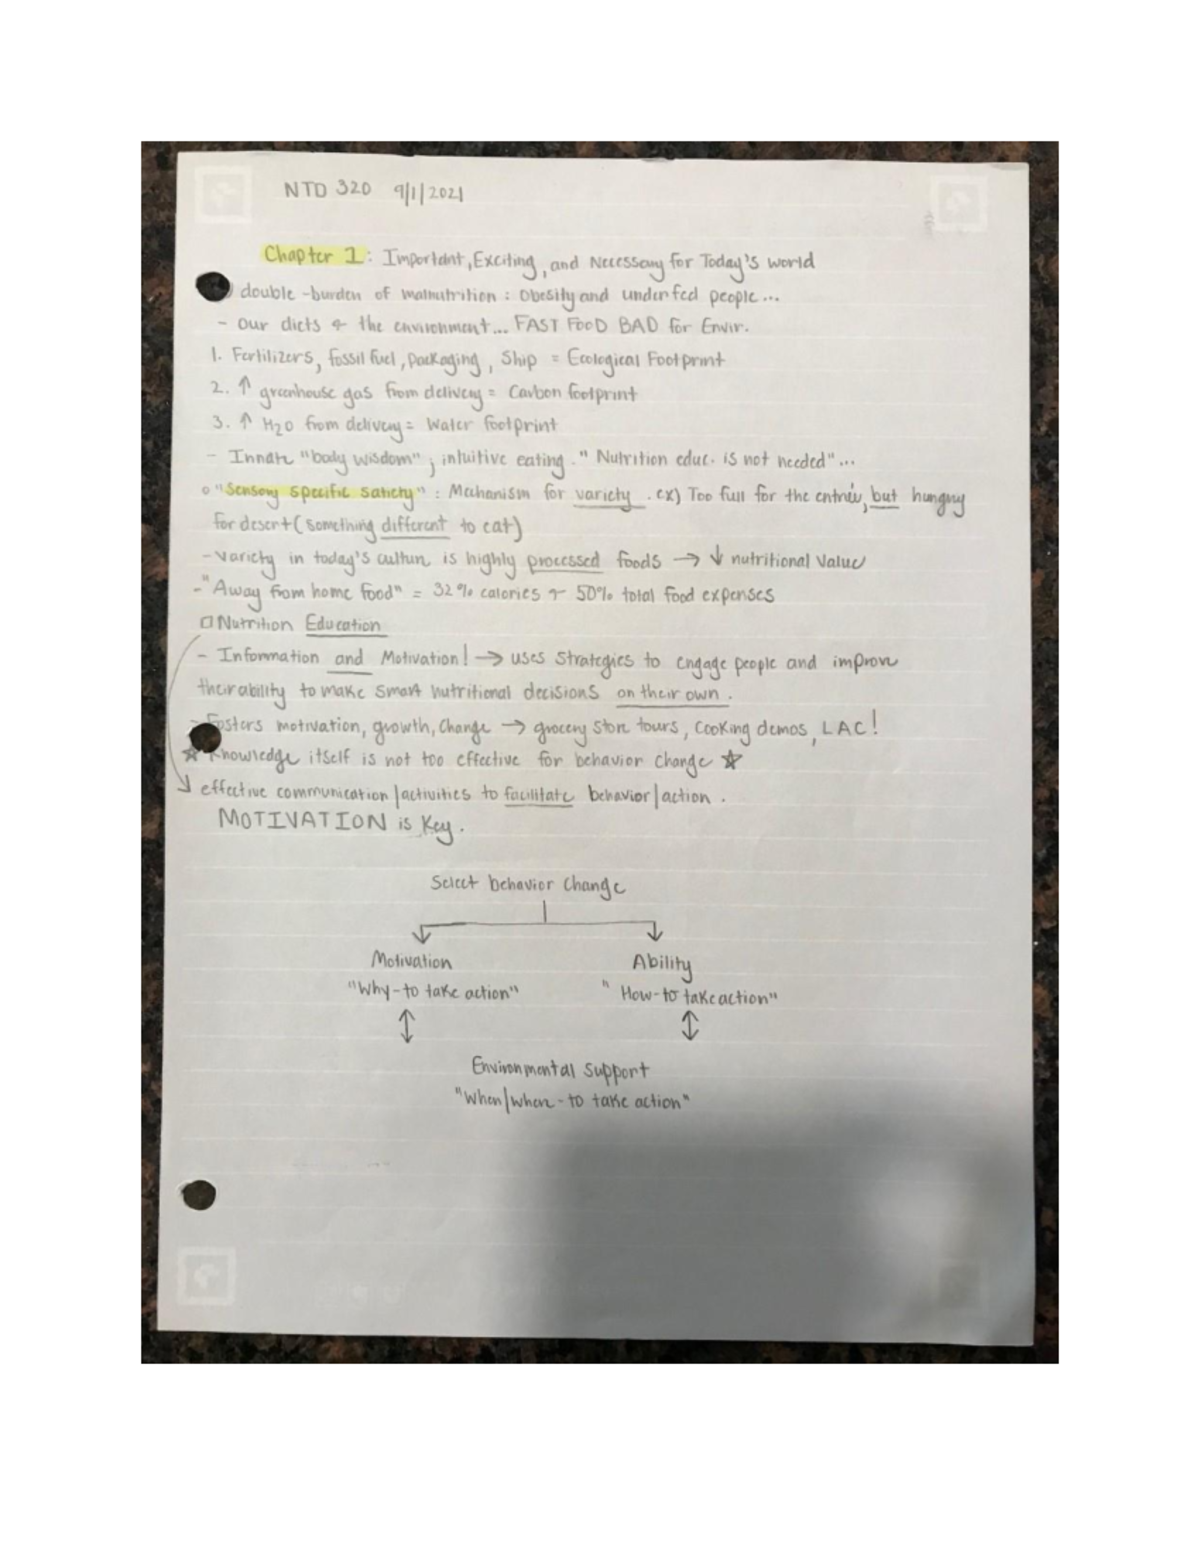 NTD 320 9/1/2021
Chapter 1: Important, Exciting, and Necessary for Today's world
double-burden of malnutrition: Obesity and underfed people...
- Our diets & the environment... FAST FOOD BAD for Envir.
1. Fertilizers, fossil fuel, packaging, Ship = Ecological Footprint
2. ↑ greenhouse gas from delivery = Carbon footprint
3. ↑ H2O from delivery = Water footprint
- Innate "body wisdom"; intuitive eating. "Nutrition educ. is not needed"...
o "Sensory specific satiety": Mechanism for variety. ex) Too full for the entrée, but hungry
for desert (something different to eat)
- Variety in today's culture is highly processed foods → ↓ nutritional value
- "Away from home food" = 32% calories + 50% total food expenses
□ Nutrition Education
- Information and Motivation! → uses strategies to engage people and improve
their ability to make smart nutritional decisions on their own.
- Fosters motivation, growth, change → grocery store tours, cooking demos, LAC!
☆ Knowledge itself is not too effective for behavior change ☆
↓ effective communication/activities to facilitate behavior/action.
MOTIVATION is Key.
Select behavior change
Motivation Ability
"Why-to take action" "How-to take action"
↕ ↕
Environmental support
"When/where-to take action"